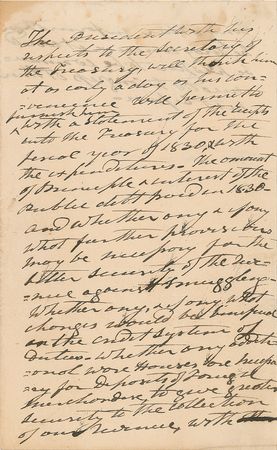 The President with his
respects to the Secretary of
the Treasury, will thank him
at as early a day as his con-
venience will permit to
furnish him
with a statement of the receipts
into the Treasury for the
fiscal year of 1830, & with
the expenditures. The amount
of Principle & interest of the
Public debt paid in 1830
and whether any & if any
what further provisions
may be necessary for the
better security of the reve-
nue against smuggling
Whether any & if any, what
changes would be beneficial
in the credit system of
duties. Whether any addit
ional ware Houses are necessa
ry for deposits of foreign
merchandize, to give greater
security to the collection
of our Revenue, with